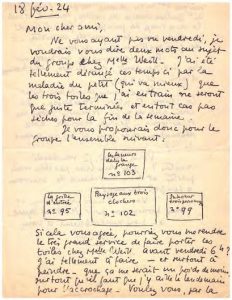 18 fév. 24
Mon cher ami,
Ne vous ayant pas vu vendredi, je
voudrais vous dire deux mots au sujet
du groupe chez Melly Weill. J'ai été
tellement dérangé ces temps ci par la
maladie du petit (qui va mieux) que
les trois toiles que j'ai en train ne seront
que juste terminées, et en tout cas pas
sèches pour la fin de la semaine.
Je vous proposerais donc pour le
groupe l'ensemble suivant:
de la
grange
n° 103
n° 95
Paysage aux trois
clochers
n° 102
n° 99
Si cela vous agrée, pourriez vous me rendre
le très grand service de faire porter ces
toiles chez Melly Weill avant vendredi 6 h?
J'ai tellement à faire – et surtout à
peindre – que ça me serait un poids de moins
surtout qu'il faut que j'y aille le lendemain
pour l'accrochage. Voulez vous, par la